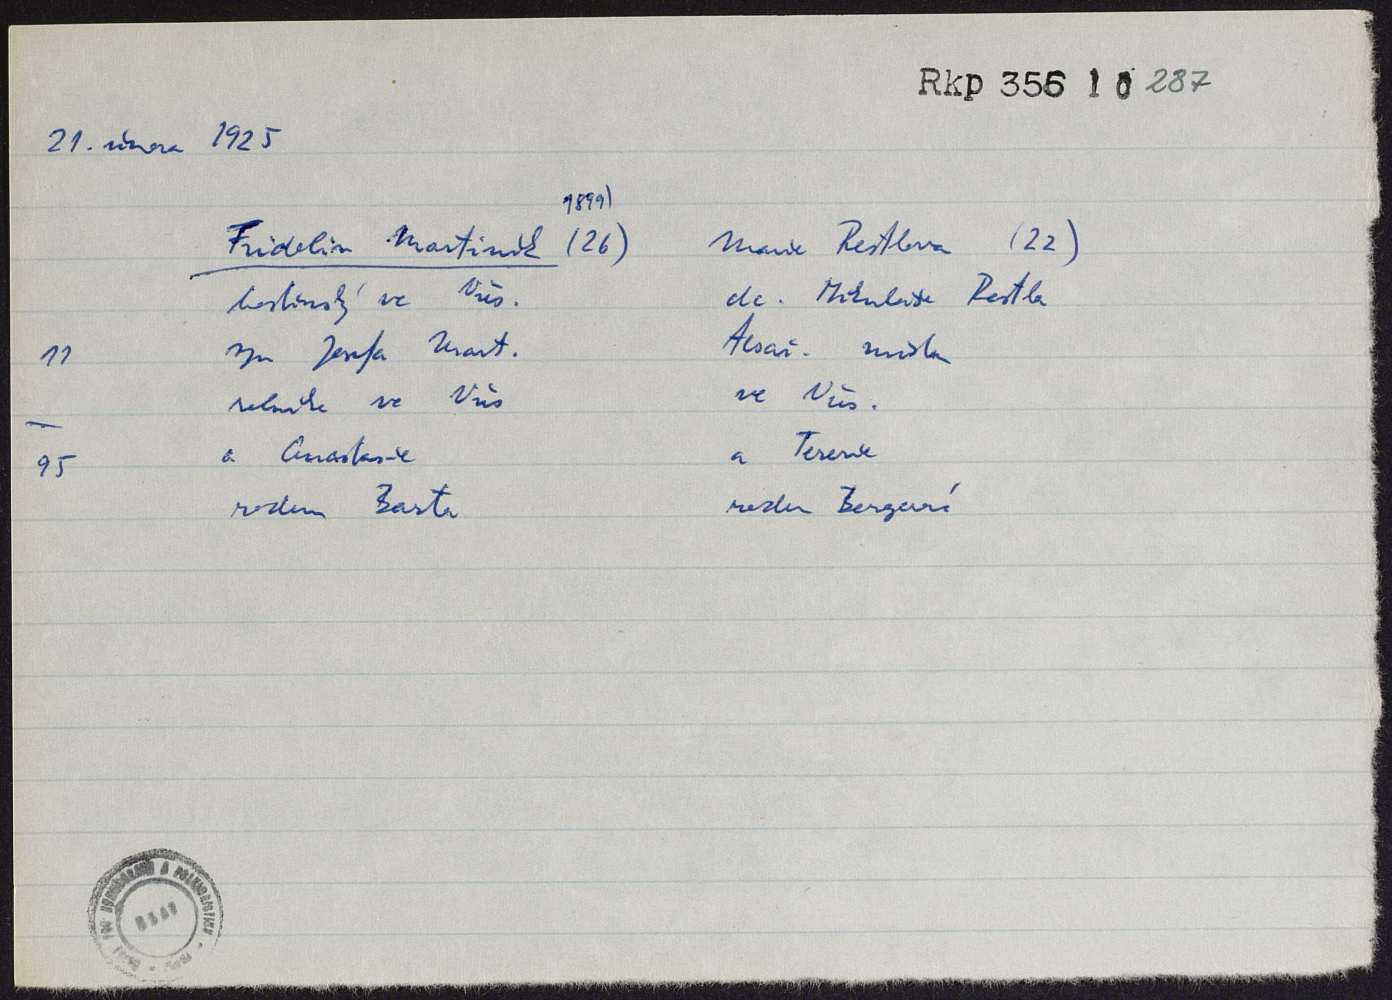 Rkp 356 10 287
21. února 1925
1899)
Fridolin Martinák (26)
hostinský ve Vřs.
11
syn Josefa Mart.
rolníka ve Vřs
—
95
a Anastasie
rodem Barta
Marie Restlova (22)
dc. Mikuláše Restla
mistra
ve Vřs.
a Terezie
rodem Bergerové